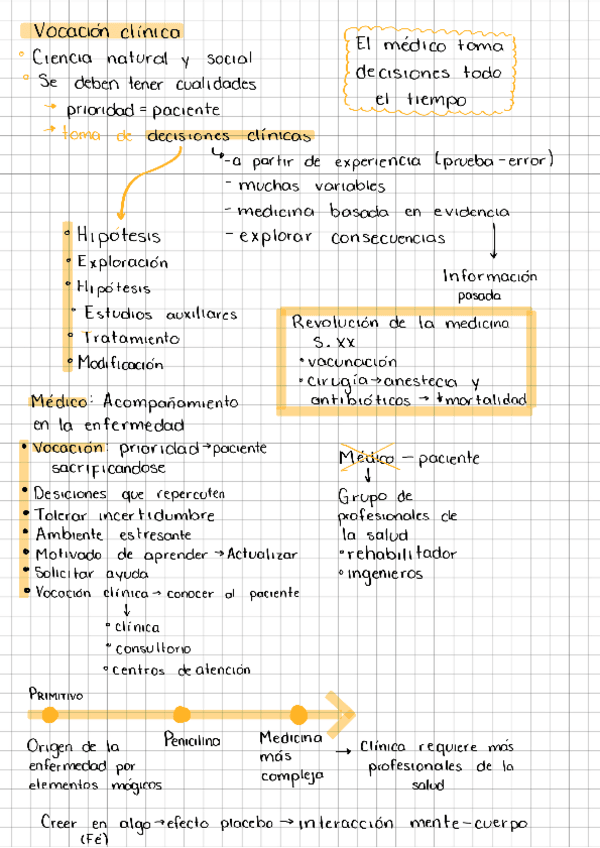 Vocación clínica
° Ciencia natural y social
° Se deben tener cualidades
→ prioridad = paciente
→ toma de decisiones clínicas
El médico toma
decisiones todo
el tiempo
↳ -a partir de experiencia (prueba-error)
- muchas variables
- medicina basada en evidencia
- explorar consecuencias
↓
Información
pasada
• Hipotesis
• Exploración
• Hipótesis
• Estudios auxiliares
• Tratamiento
• Modificación
Revolución de la medicina
S. XX
• vacunación
• cirugía → anestecia y
antibióticos → ↓mortalidad
Médico: Acompañamiento
en la enfermedad
• Vocación: prioridad → paciente
sacrificandose
• Desiciones que repercuten
• Tolerar incertidumbre
• Ambiente estresante
• Motivado de aprender → Actualizar
• Solicitar ayuda
• Vocación clínica → conocer al paciente
↓
° clínica
° consultorio
° centros de atención
Médico — paciente
↓
Grupo de
profesionales de
la salud
• rehabilitador
° ingenieros
PRIMITIVO
Origen de la
enfermedad por
elementos mágicos
Penicilina
Medicina
más
compleja
→ Clínica requiere más
profesionales de la
salud
Creer en algo → efecto placebo → interacción mente-cuerpo
(Fé)